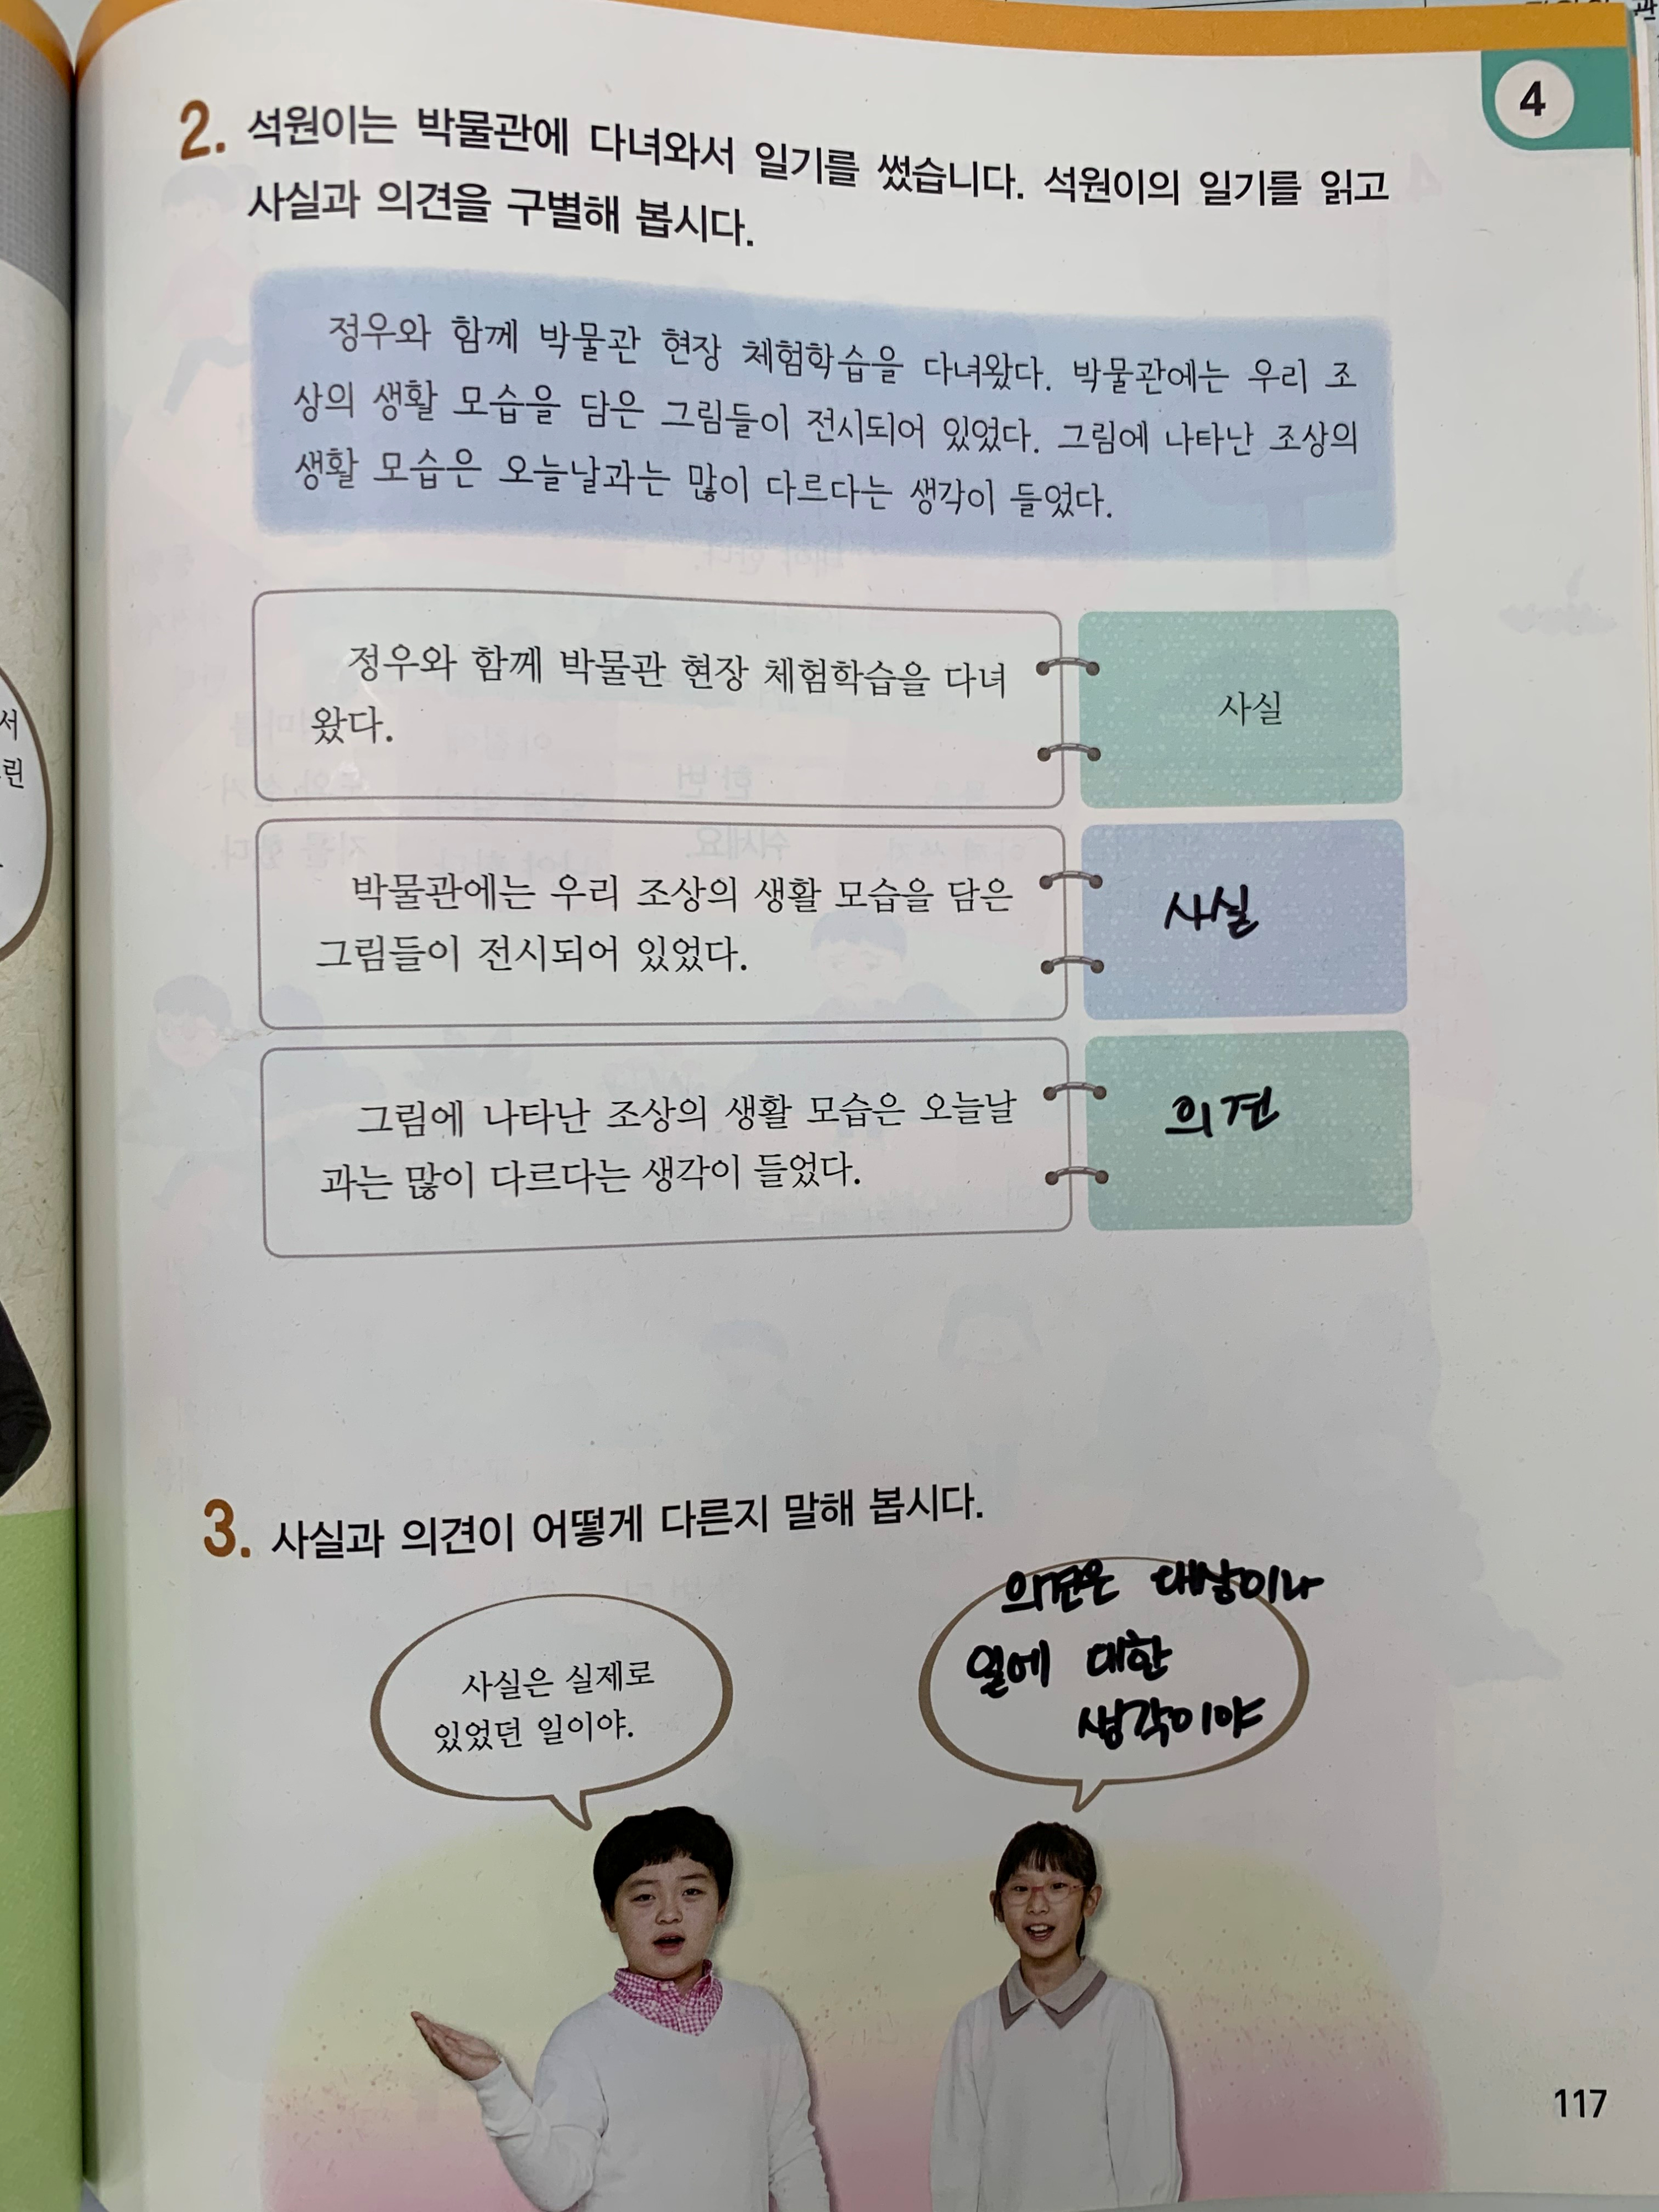 4
2. 석원이는 박물관에 다녀와서 일기를 썼습니다. 석원이의 일기를 읽고
사실과 의견을 구별해 봅시다.
정우와 함께 박물관 현장 체험학습을 다녀왔다. 박물관에는 우리 조
상의 생활 모습을 담은 그림들이 전시되어 있었다. 그림에 나타난 조상의
생활 모습은 오늘날과는 많이 다르다는 생각이 들었다.
정우와 함께 박물관 현장 체험학습을 다녀
왔다.
사실
박물관에는 우리 조상의 생활 모습을 담은
그림들이 전시되어 있었다.
사실
그림에 나타난 조상의 생활 모습은 오늘날
과는 많이 다르다는 생각이 들었다.
의견
3. 사실과 의견이 어떻게 다른지 말해 봅시다.
사실은 실제로
있었던 일이야.
의견은 대상이나
일에 대한
생각이야
117